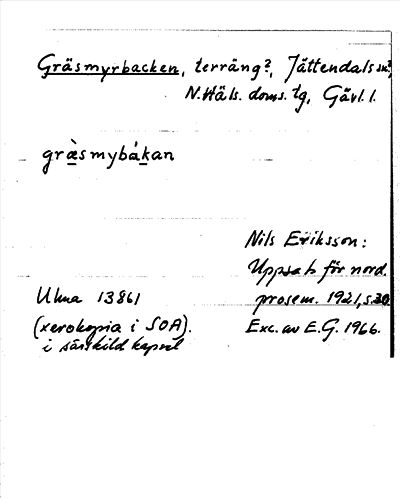 Gräsmyrbacken, terräng?, Jättendals sn?,
N. Häls. doms. tg, Gävl. l.
gràsmybákan
Nils Eriksson:
Uppsats för nord.
prosem. 1921, s. 30.
Ulma 13861
(xerokopia i SOA).
i särskild kapsel
Exc. av E.G. 1966.